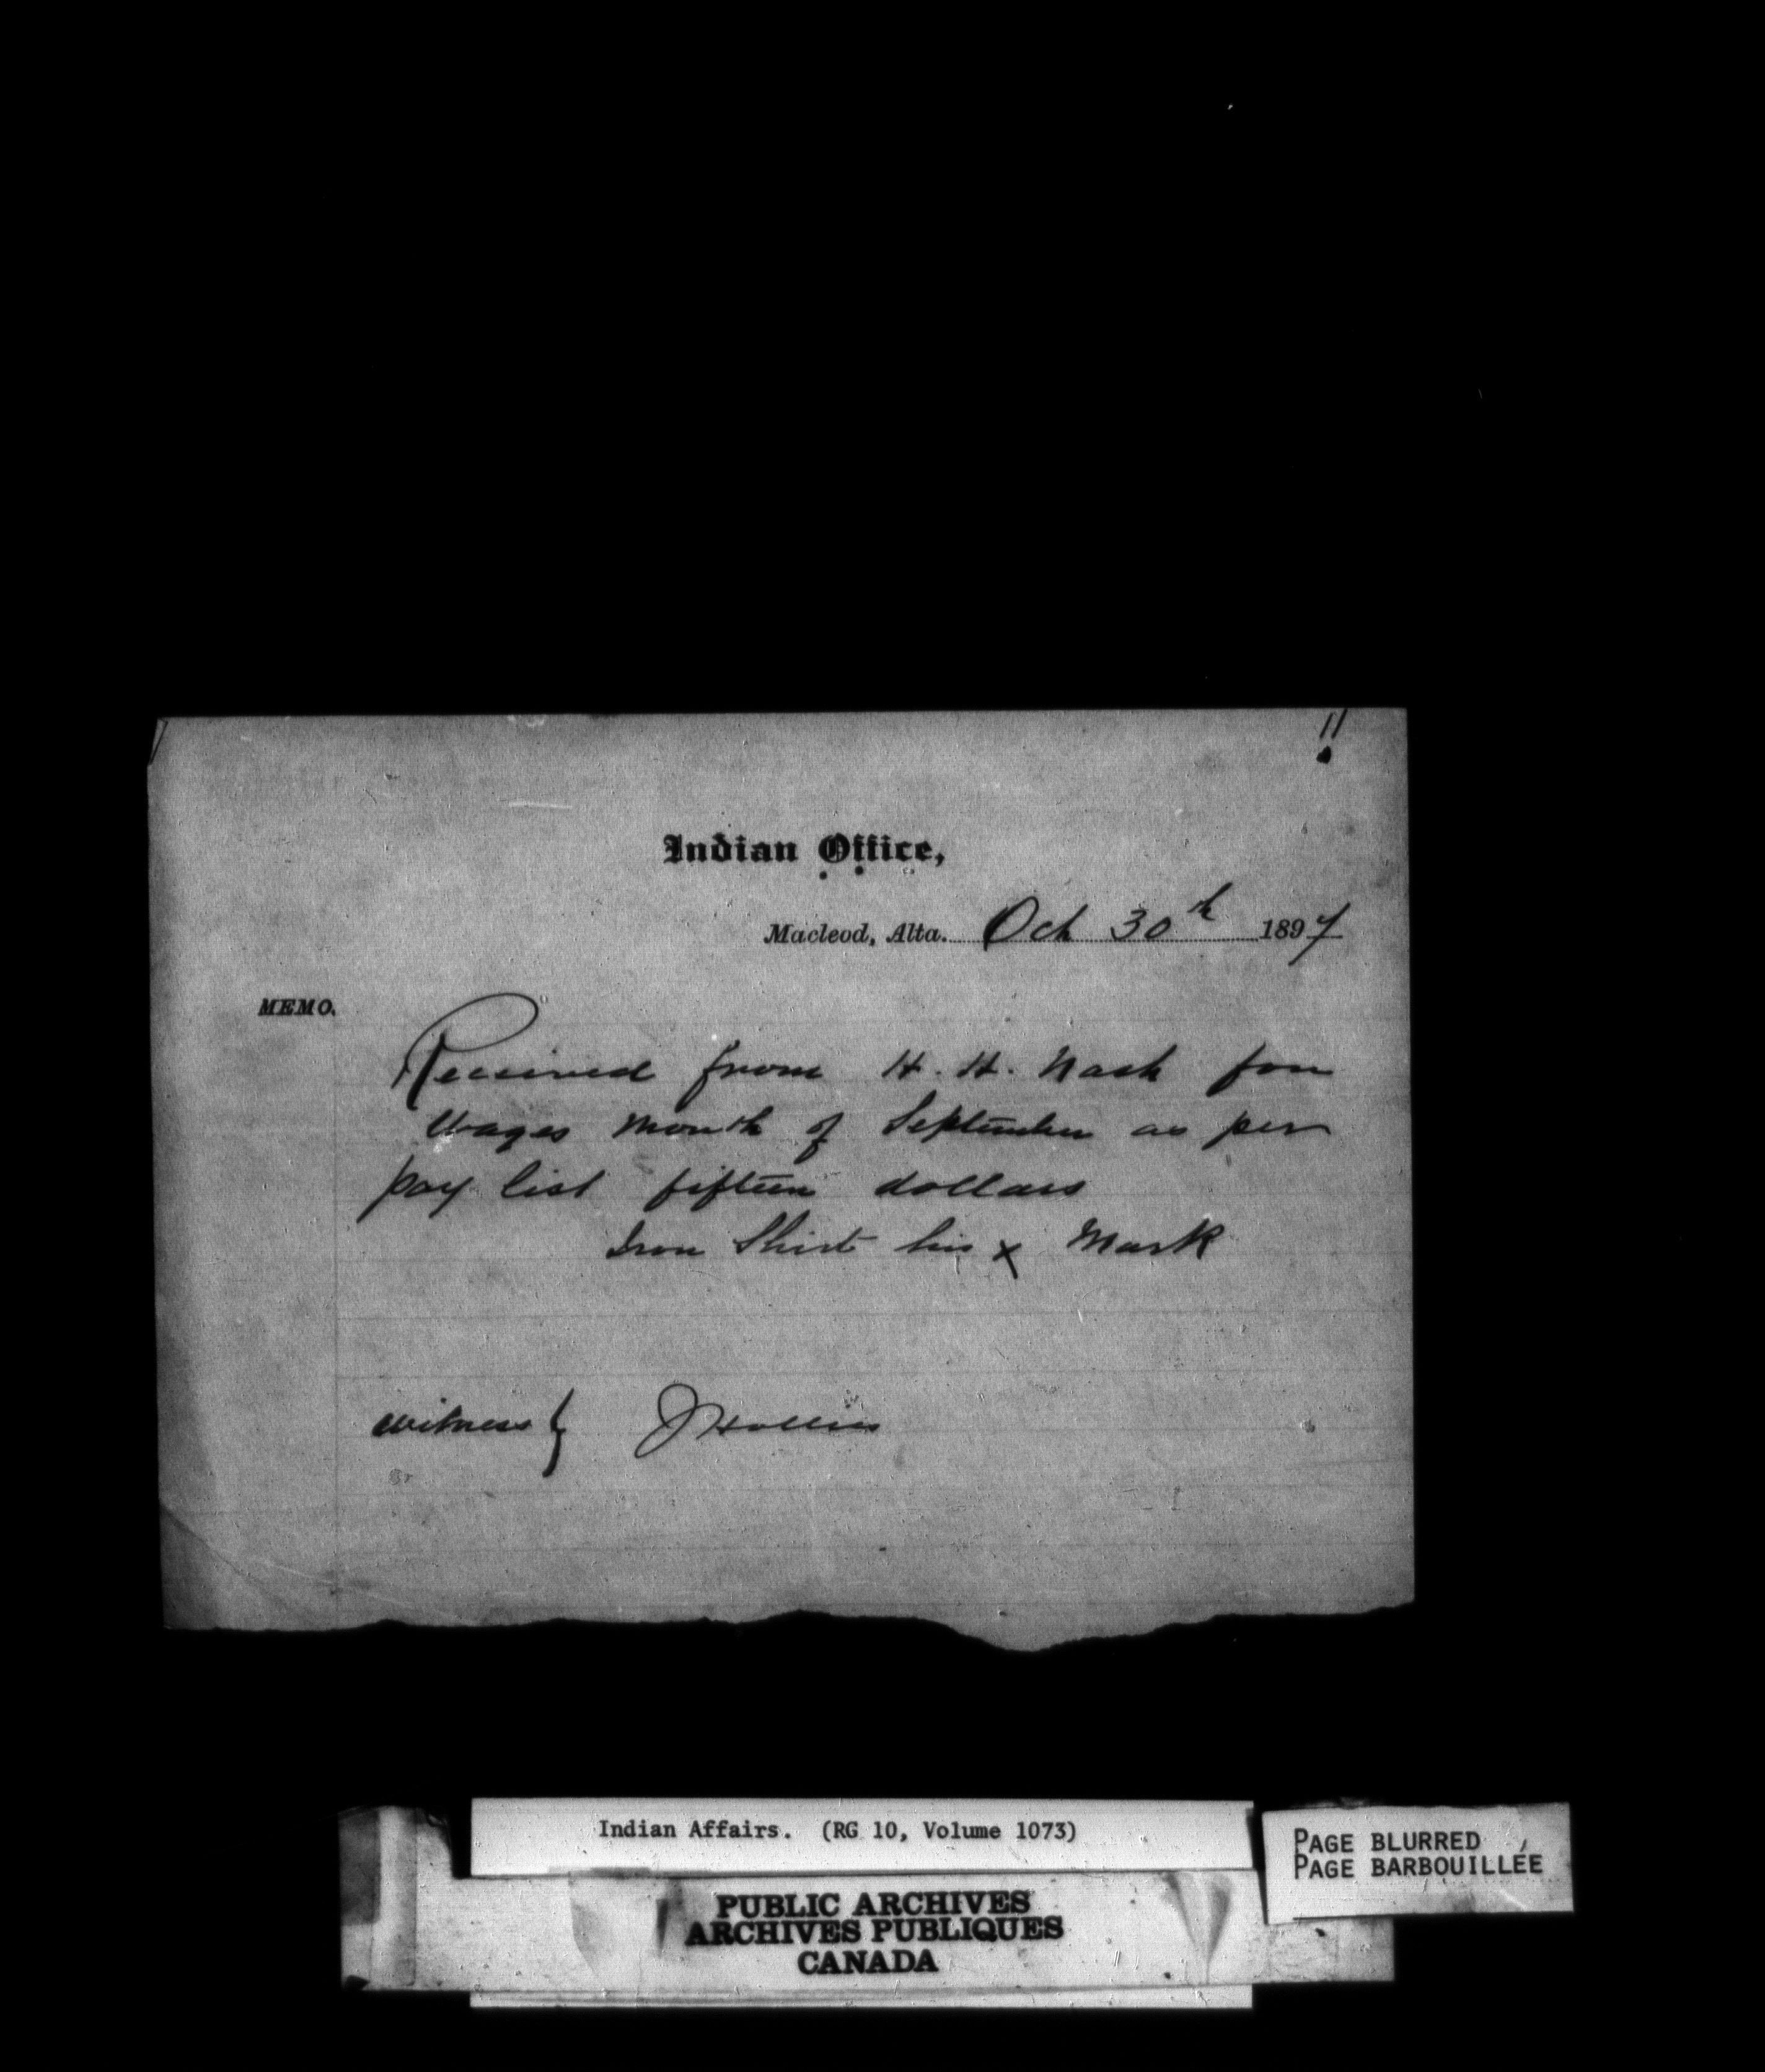 11
Indian Office,
Macleod, Alta. Oct 30th 1897
MEMO.
Received from H. H. Nash for
Wages Month of September as per
pay list fifteen dollars
Iron Shirt his x Mark
witness } J Hollies
Indian Affairs. (RG 10, Volume 1073)
PAGE BLURRED
PAGE BARBOUILLÉE
PUBLIC ARCHIVES
ARCHIVES PUBLIQUES
CANADA